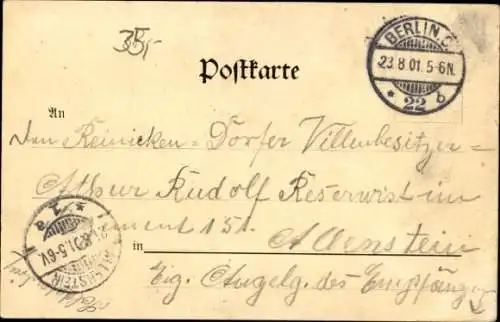 35,-
BERLIN. C.
23.8.01.5-6N.
* 22 b
Postkarte
An
Den Reinicken=Dorfer Villenbesitzer=
Arthur Rudolf Reservist im
ment 151.
in Allenstein
Eig. Angelg. des Empfängers
ALLENSTEIN
* 1 a
5-6V.